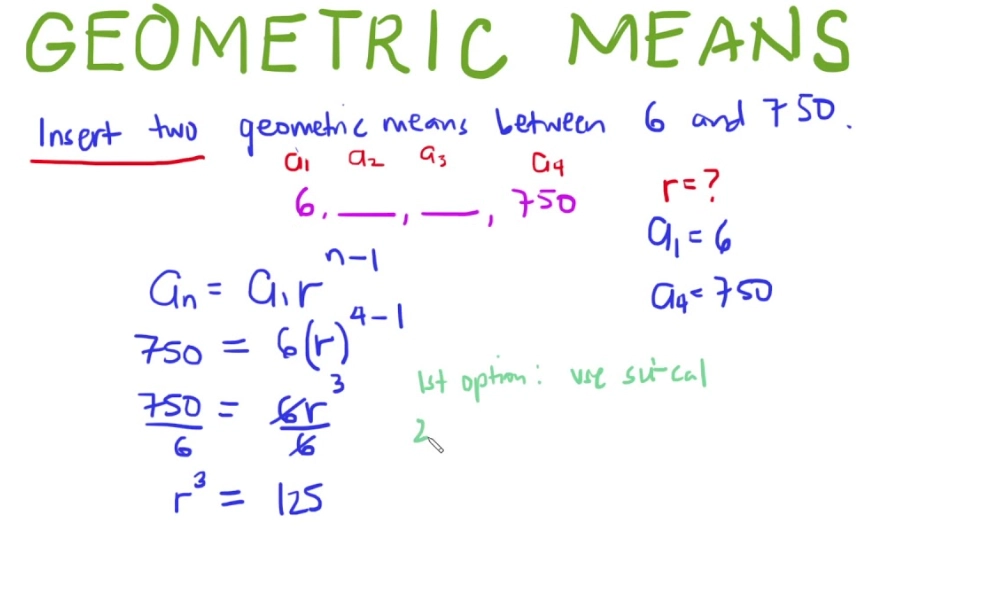 GEOMETRIC MEANS
Insert two geometric means between 6 and 750.
a1 a2 a3 a4
6, ___, ___, 750
r=?
a1 = 6
a4 = 750
an = a1 r^n-1
750 = 6(r)^4-1
750/6 = 6r^3/6
r^3 = 125
1st option: use sci-cal
2